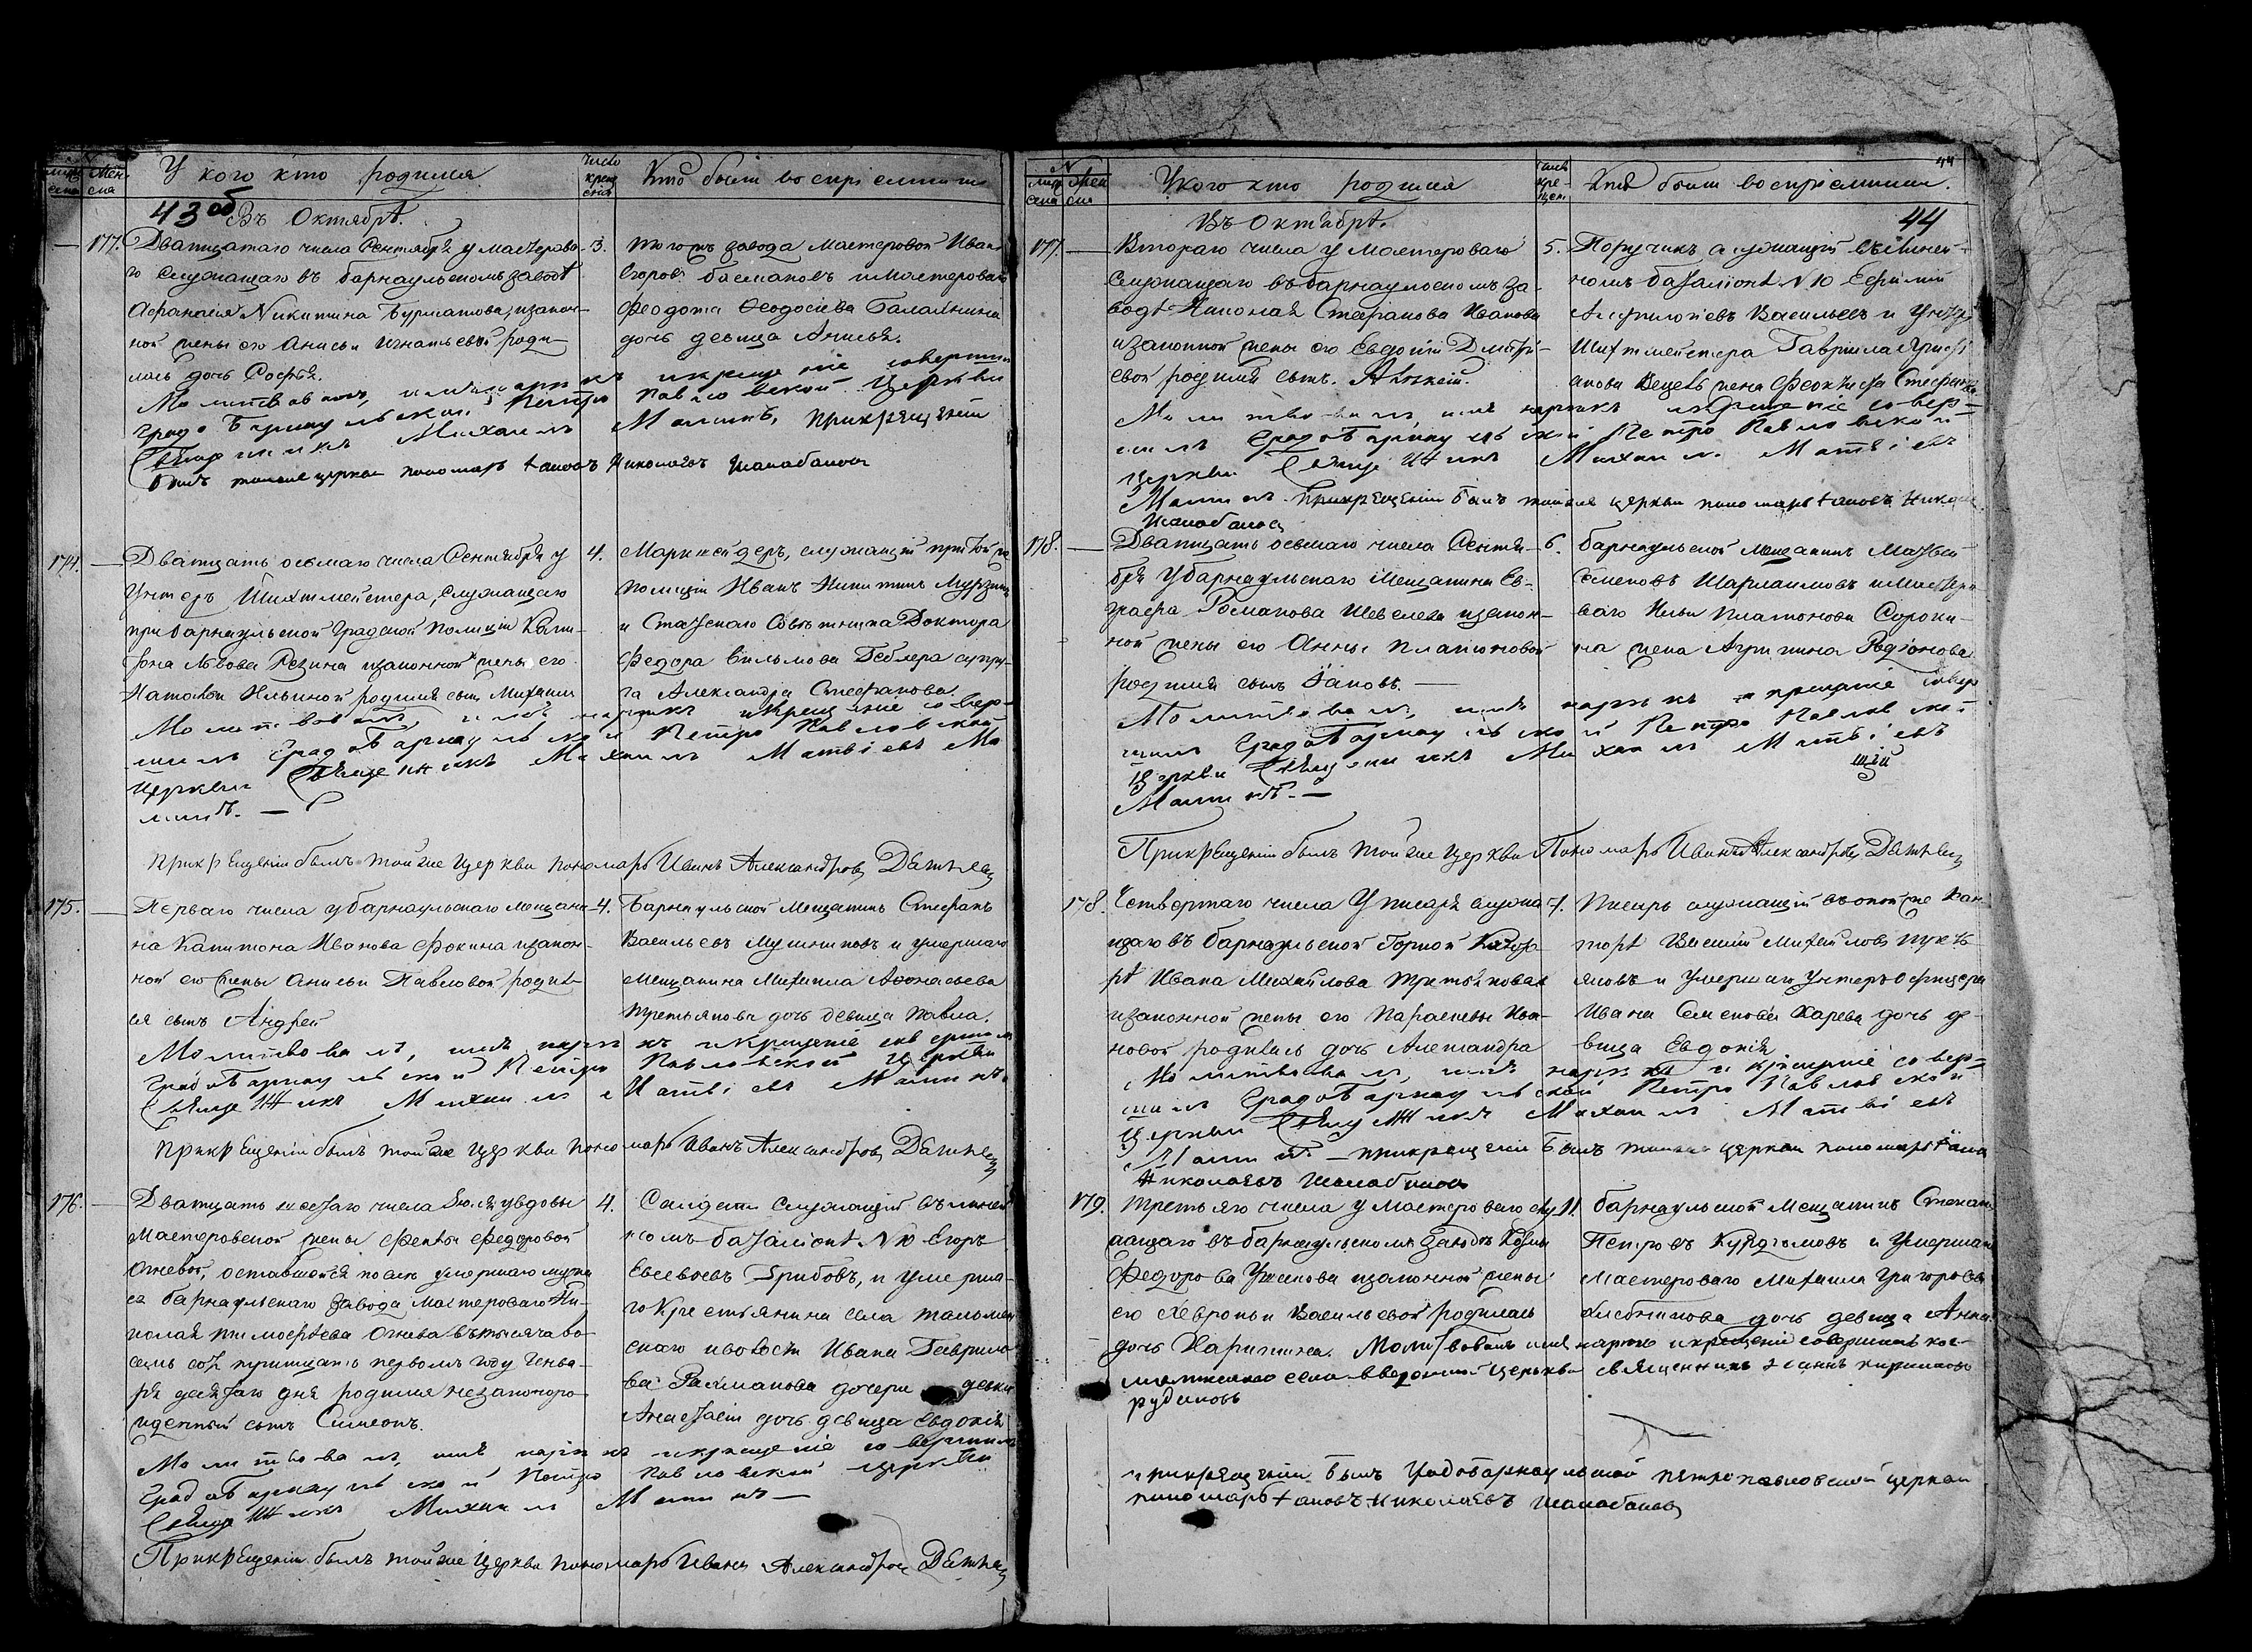 У кого кто родился
число креще нія
Кто были воспріемники
43 об
Въ Октябрѣ.
177.
Дватцатаго числа Сентября у мастерова-
го служащаго въ барнаульскомъ заводѣ
Афанасія Никитина Бурматова, изакон-
ной жены его Анисьи Игнатьевой роди-
лась дочь Софья.
3.
тогожъ завода мастеровой Иванъ
Егоровъ басмановъ и мастероваго
Феодота Феодосіева
дочь девица Анисья.
Молитвовалъ, имя нарекъ и крещеніе совершилъ
Градо Барнаульской Петро Павловской Церкви
Священникъ Михаилъ Малинъ, прикрещеніи
былъ тойже церкви пономарь Іаковъ Николаевъ Шалабановъ
174.
Дватцать осьмаго числа Сентября у
Унтеръ Шихтмейстера, служащаго
при барнаульской Градской Полиціи Капи-
тона Львова Резина изаконной жены его
Натальи Ильиной родился сынъ Михаилъ
4.
Маркшейдеръ, служащій при той же
полиціи Иванъ Никитинъ Мурзинъ
и Статскаго Совѣтника Доктора
Федора Вильмова Геблера супру-
га Александра Стефанова.
Молитвовалъ, имя нарекъ икрещеніе совер-
шилъ Градо Барнаульской Петро Павловской
Церкви Священникъ Михаилъ Матвіевъ Ма
линъ. —
прикрещеніи былъ тойже Церкви пономарь Иванъ Александровъ
175.
Перваго числа у барнаульскаго мещани-
на Капитона Иванова Фокина изакон-
ной его жены Анисьи Павловой родил-
ся сынъ Андрей
4.
Барнаульской Мещанинъ Стефанъ
Васильевъ Мушниковъ и умершаго
мещанина Михаила Афонасьева
третьякова дочь девица Павла.
Молитвовалъ, имя нарекъ икрещеніе совершилъ
Градо Барнаульской Петро Павловской Церкви
Священникъ Михаилъ Матвіевъ Малинъ.
прикрещеніи былъ тойже Церкви пономарь Иванъ Александровъ
176.
Дватцать шестаго числа Іюля увдовы
Мастеровской жены Феклы Федоровой
Огневой, оставшейся послѣ умершаго мужа
ея барнаульскаго завода мастероваго Ни-
колая тимофѣева Огнева вътысяча во-
семь сотъ тритцать первомъ году Генва-
ря десятаго дня родился незаконоро
жденный сынъ Симеонъ.
4.
Салдатъ служащій вълиней
номъ баталіонѣ №10 Егоръ
Евсевьевъ Грибовъ, и умерша-
го Крестьянина села тальмен
скаго иволости Ивана Гаврило
ва Рахманова дочери девки
Анастасіи дочь девица Евдокія
Молитвовалъ, имя нарекъ икрещеніе совершилъ
Градо Барнаульской Петро Павловской Церкви
Священникъ Михаилъ Малинъ —
Прикрещеніи былъ тойже Церкви пономарь Иванъ Александровъ
У кого кто родился
Кто были воспріемники.
44
Въ Октябрѣ.
44
177.
Втораго числа у мастероваго
служащаго въбарнаульскомъ за-
водѣ Николая Стефанова Иванова
изаконной жены его Евдокіи Дмитрі-
евой родился сынъ. Алексѣй.
5.
Поручикъ служащій влиней-
номъ баталіонѣ №10 Ефимій
Васильевъ и Унтеръ
Шихтмейстера Гавриила
жена Феоктиста Стефанова
Молитвовалъ, имя нарекъ икрещеніе совер-
шилъ Градо Барнаульской Петро Павловской
Церкви Священникъ Михаилъ Матвіевъ
Малинъ. Прикрещеніи былъ тойже церкви пономарь Іаковъ Николаевъ
Шалабановъ
178.
Дватцать осьмаго числа Сентя-
бря Убарнаульскаго Мещанина Ев-
графа Романова Шевелева изакон-
ной жены его Анны Платоновой
родился сынъ Іаковъ. —
6.
барнаульской Мещанинъ Матвей
Семеновъ Шарламовъ имастеро
ваго Ильи Платонова Сороки-
на жена Агрипина Родіонова.
Молитвовалъ, имя нарекъ и крещеніе совер
шилъ Градо Барнаульской Петро Павловской
Церкви Священникъ Михаилъ Матвіевъ
Малинъ. —
Прикрещеніи былъ тойже Церкви Пономарь Иванъ Александровъ
178.
Четвертаго числа У писаря служа
щаго въ барнаульской Горной Канто-
рѣ Ивана Михайлова Третьякова
изаконной жены его Параскевы Ива-
новой родилась дочь Александра
7.
Писарь служащій въонойже Кан-
торѣ Василій Михайловъ
и Умершаго Унтеръ Офицера
Ивана Семенова Карева дочь де-
вица Евдокія
Молитвовалъ, имя нарекъ и крещеніе совер-
шилъ Градо Барнаульской Петро Павловской
Церкви Священникъ Михаилъ Матвіевъ
Малинъ. — прикрещеніи былъ тойже церкви пономарь Іаковъ
Николаевъ Шалабановъ
179.
третьяго числа у Мастероваго слу
жащаго въбарнаульскомъ Заводѣ Козмы
Федорова Ушакова изаконной жены
его Хевроньи Васильевой родилась
дочь Харитина. Молитвовалъ имя нарекъ икрещеніе совершилъ
села церькви священникъ Іоаннъ
рудаковъ
11.
барнаульской Мещанинъ Степанъ
Петровъ и Умершаго
мастероваго Михаила Григорьева
Хлебникова дочь девица Анна.
прикрещеніи былъ Градобарнаульской петропавловской церкви
пономарь Іаковъ Николаевъ Шалабановъ